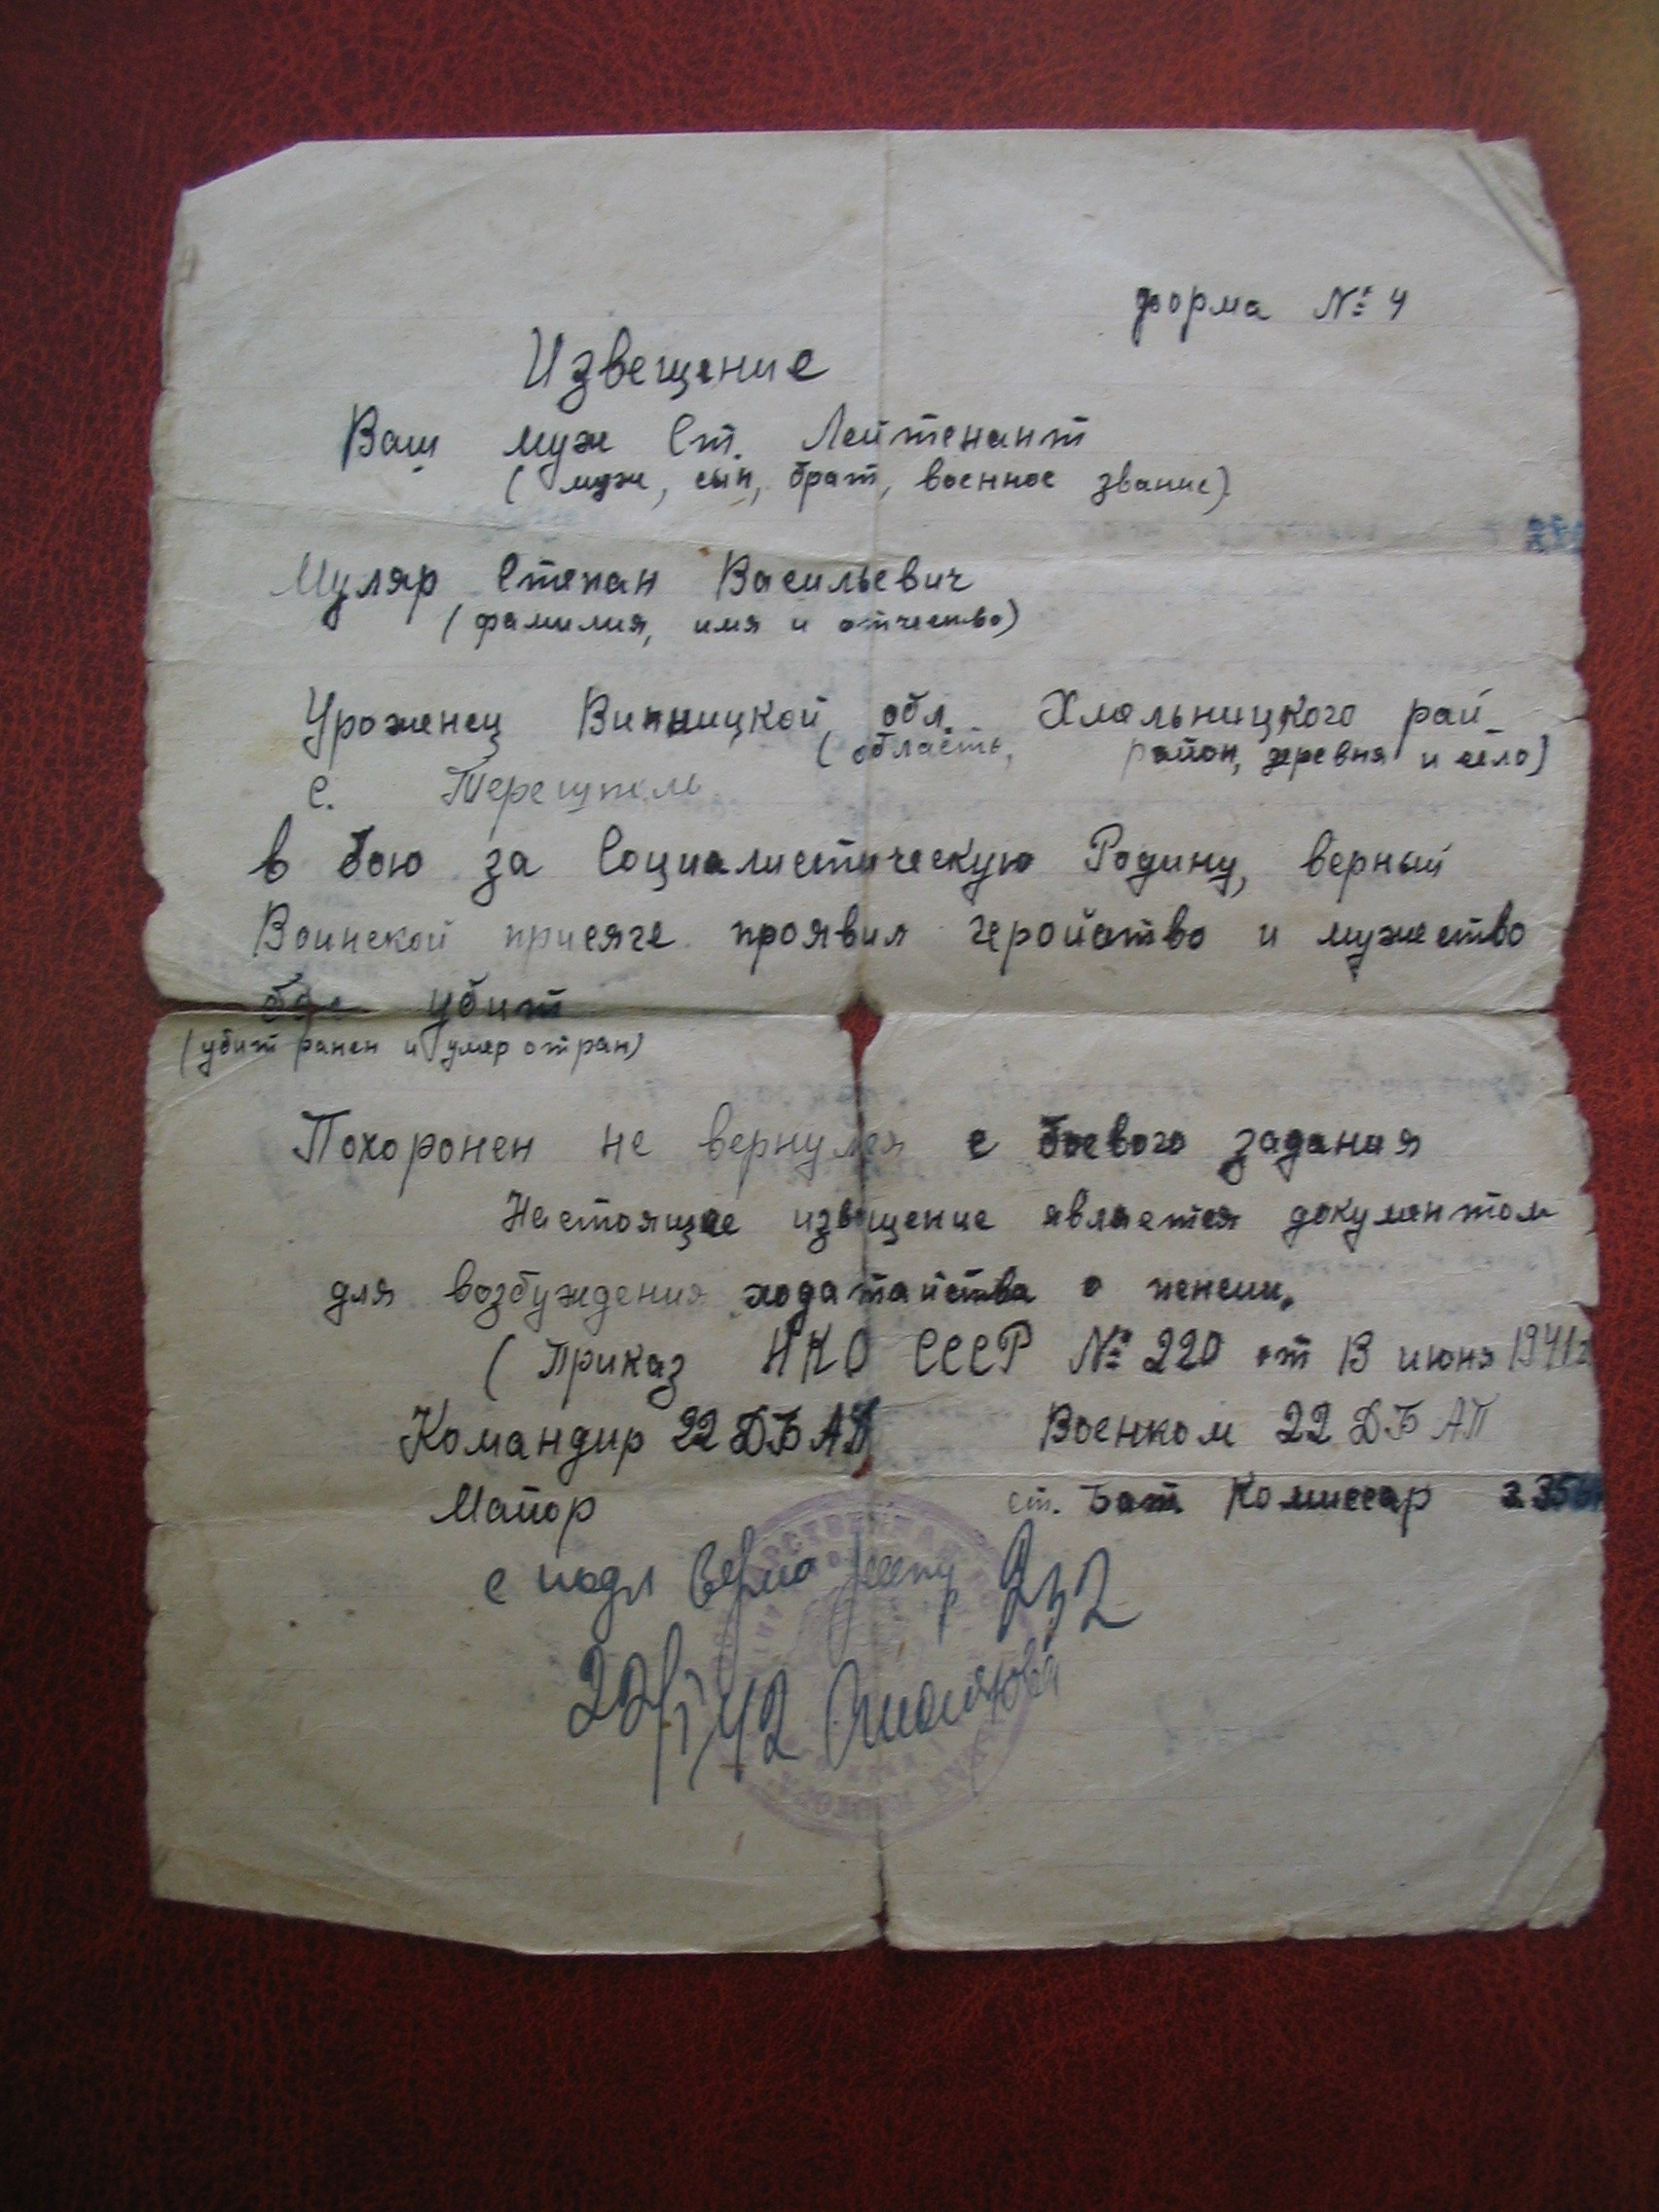 форма № 4
Извещение
Ваш муж Ст. Лейтенант
(муж, сын, брат, военное звание)
Муляр Степан Васильевич
(фамилия, имя и отчество)
Уроженец Винницкой обл. Хмельницкого рай
(область, район, деревня и село)
с.
в бою за Социалистическую Родину, верный
Воинской присяге проявил геройство и мужество
убит
(убит ранен и умер от ран)
Похоронен не вернулся с боевого задания
Настоящее извещение является документом
для возбуждения ходатайства о пенсии.
(Приказ НКО СССР № 220 от 13 июня 1941г
Командир 22 ДБАП Военком 22 ДБАП
Майор ст. Бат. Комиссар
с подл верно
22/ 42